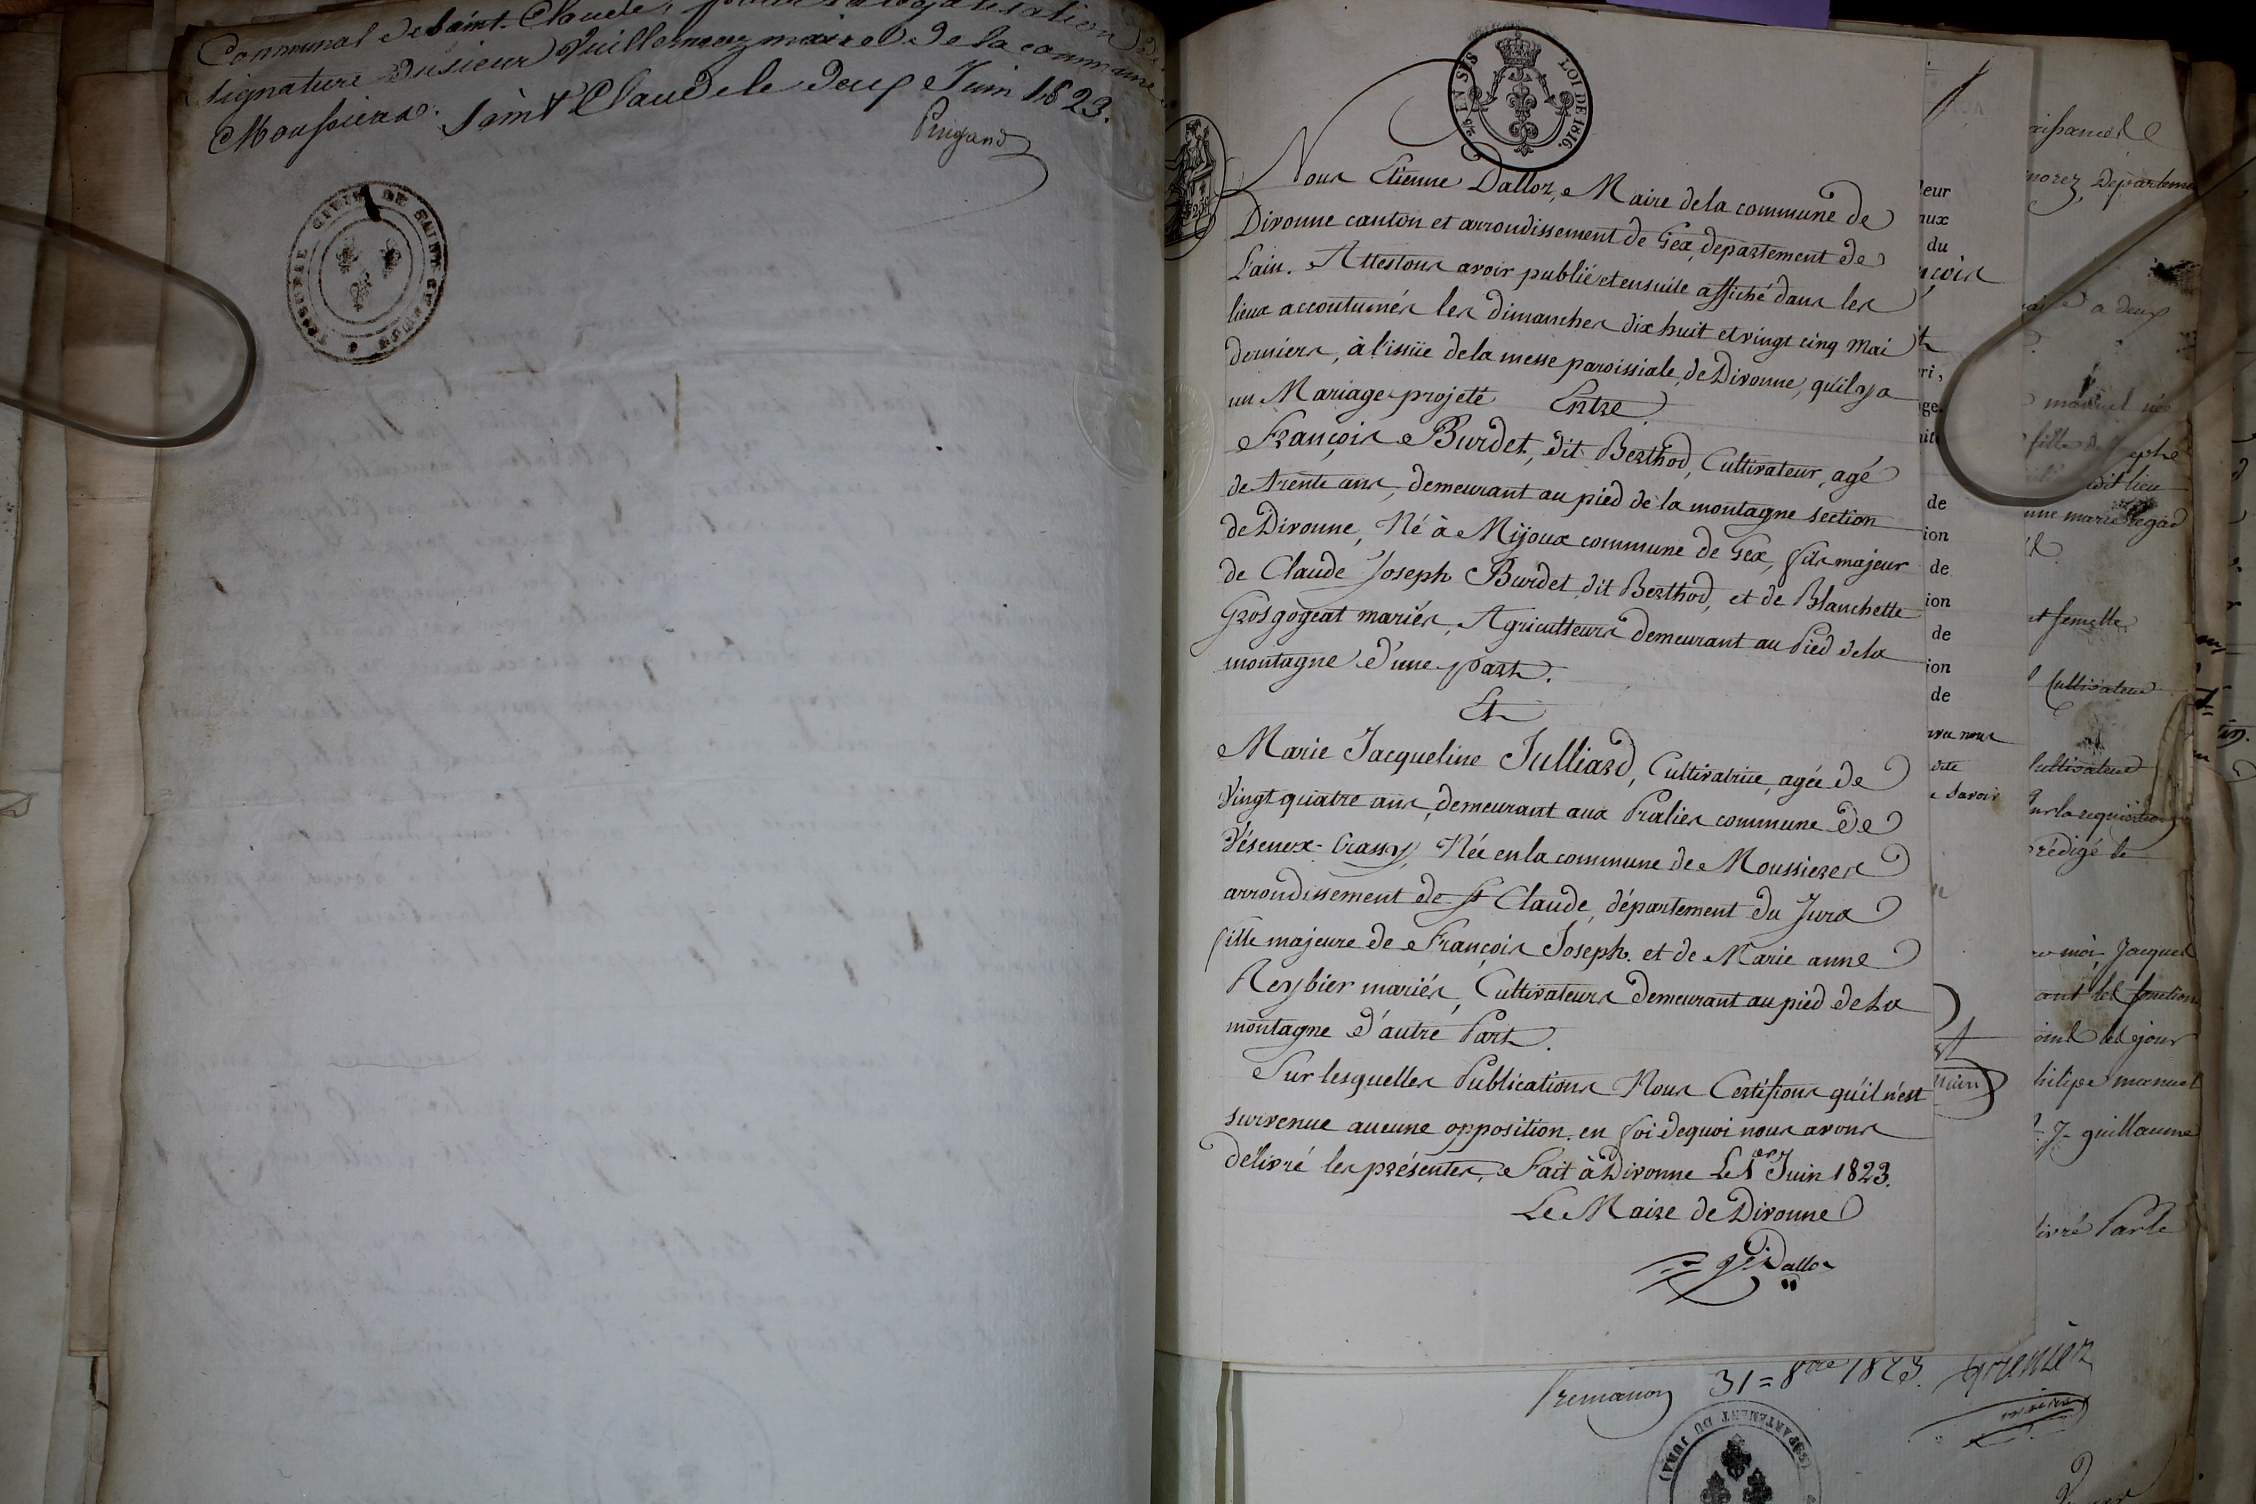 Communal de Saint-Claude, pour la legalisation de
signature du sieur Vuillermoz maire de la commune
Moussieres. Saint Claude le deux Juin 1823.
Perigand
TRIBUNE CIVIL DE SAINT CLAUDE
25 EN SUS
LOI DE 1816.
Nous Etienne Dalloz, Maire de la commune de
Divonne canton et arrondissement de Gex, departement de
Lain. Attestons avoir publié et ensuite affiché dans les
lieux accoutumés les dimanches dix huit et vingt cinq mai
derniers, à l'issüe de la messe paroissiale, de Divonne, qu'il y a
un Mariage projeté Entre
François Burdet, dit Berthod, Cultivateur, agé
de trente ans, demeurant au pied de la montagne section
de Divonne, Né à Mijoux commune de Gex, fils majeur
de Claude Joseph Burdet dit Berthod, et de Blanchette
Grosgogeat mariés, Agriculteurs demeurant au Pied de la
montagne d'une part.
Et
Marie Jacqueline Julliard, Cultivatrice, agée de
Vingt quatre ans, demeurant aux Pralies commune de
Vésenex-Crassy, Née en la commune de Moussieres
arrondissement de St Claude, département du Jura
fille majeure de François Joseph. et de Marie anne
Reybier mariés, Cultivateurs demeurant au pied de La
montagne d'autre Part.
Sur lesquelles Publications Nous Certifions qu'il n'est
survenue aucune opposition. en foi dequoi nous avons
délivré les présentes, Fait à Divonne Le 1er Juin 1823.
Le Maire de Divonne
Dalloz
Premanon 31 = 8bre 1823. Grenier
maire
DEPARTEMENT DU JURA
leur
aux
du
de
ion
de
ion
de
ion
de
savoir
Cultivateur
sur la requisition
rédigé le
moi, Jacques
ant les fonctions
hilipe manuel
J. guillaume
livré Par le